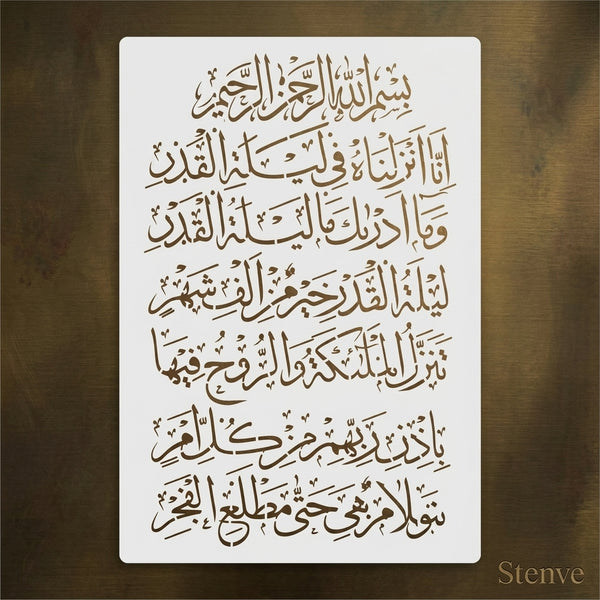 بسم الله الرحمن الرحيم
إنا أنزلناه في ليلة القدر
وما أدريك ما ليلة القدر
ليلة القدر خير من ألف شهر
تنزل الملئكة والروح فيها
بإذن ربهم من كل أمر
هي حتى مطلع الفجر
Stenve